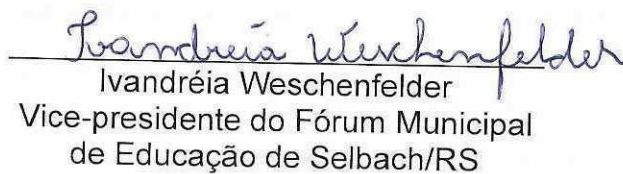 Ivandréia Weschenfelder
Ivandréia Weschenfelder
Vice-presidente do Fórum Municipal
de Educação de Selbach/RS